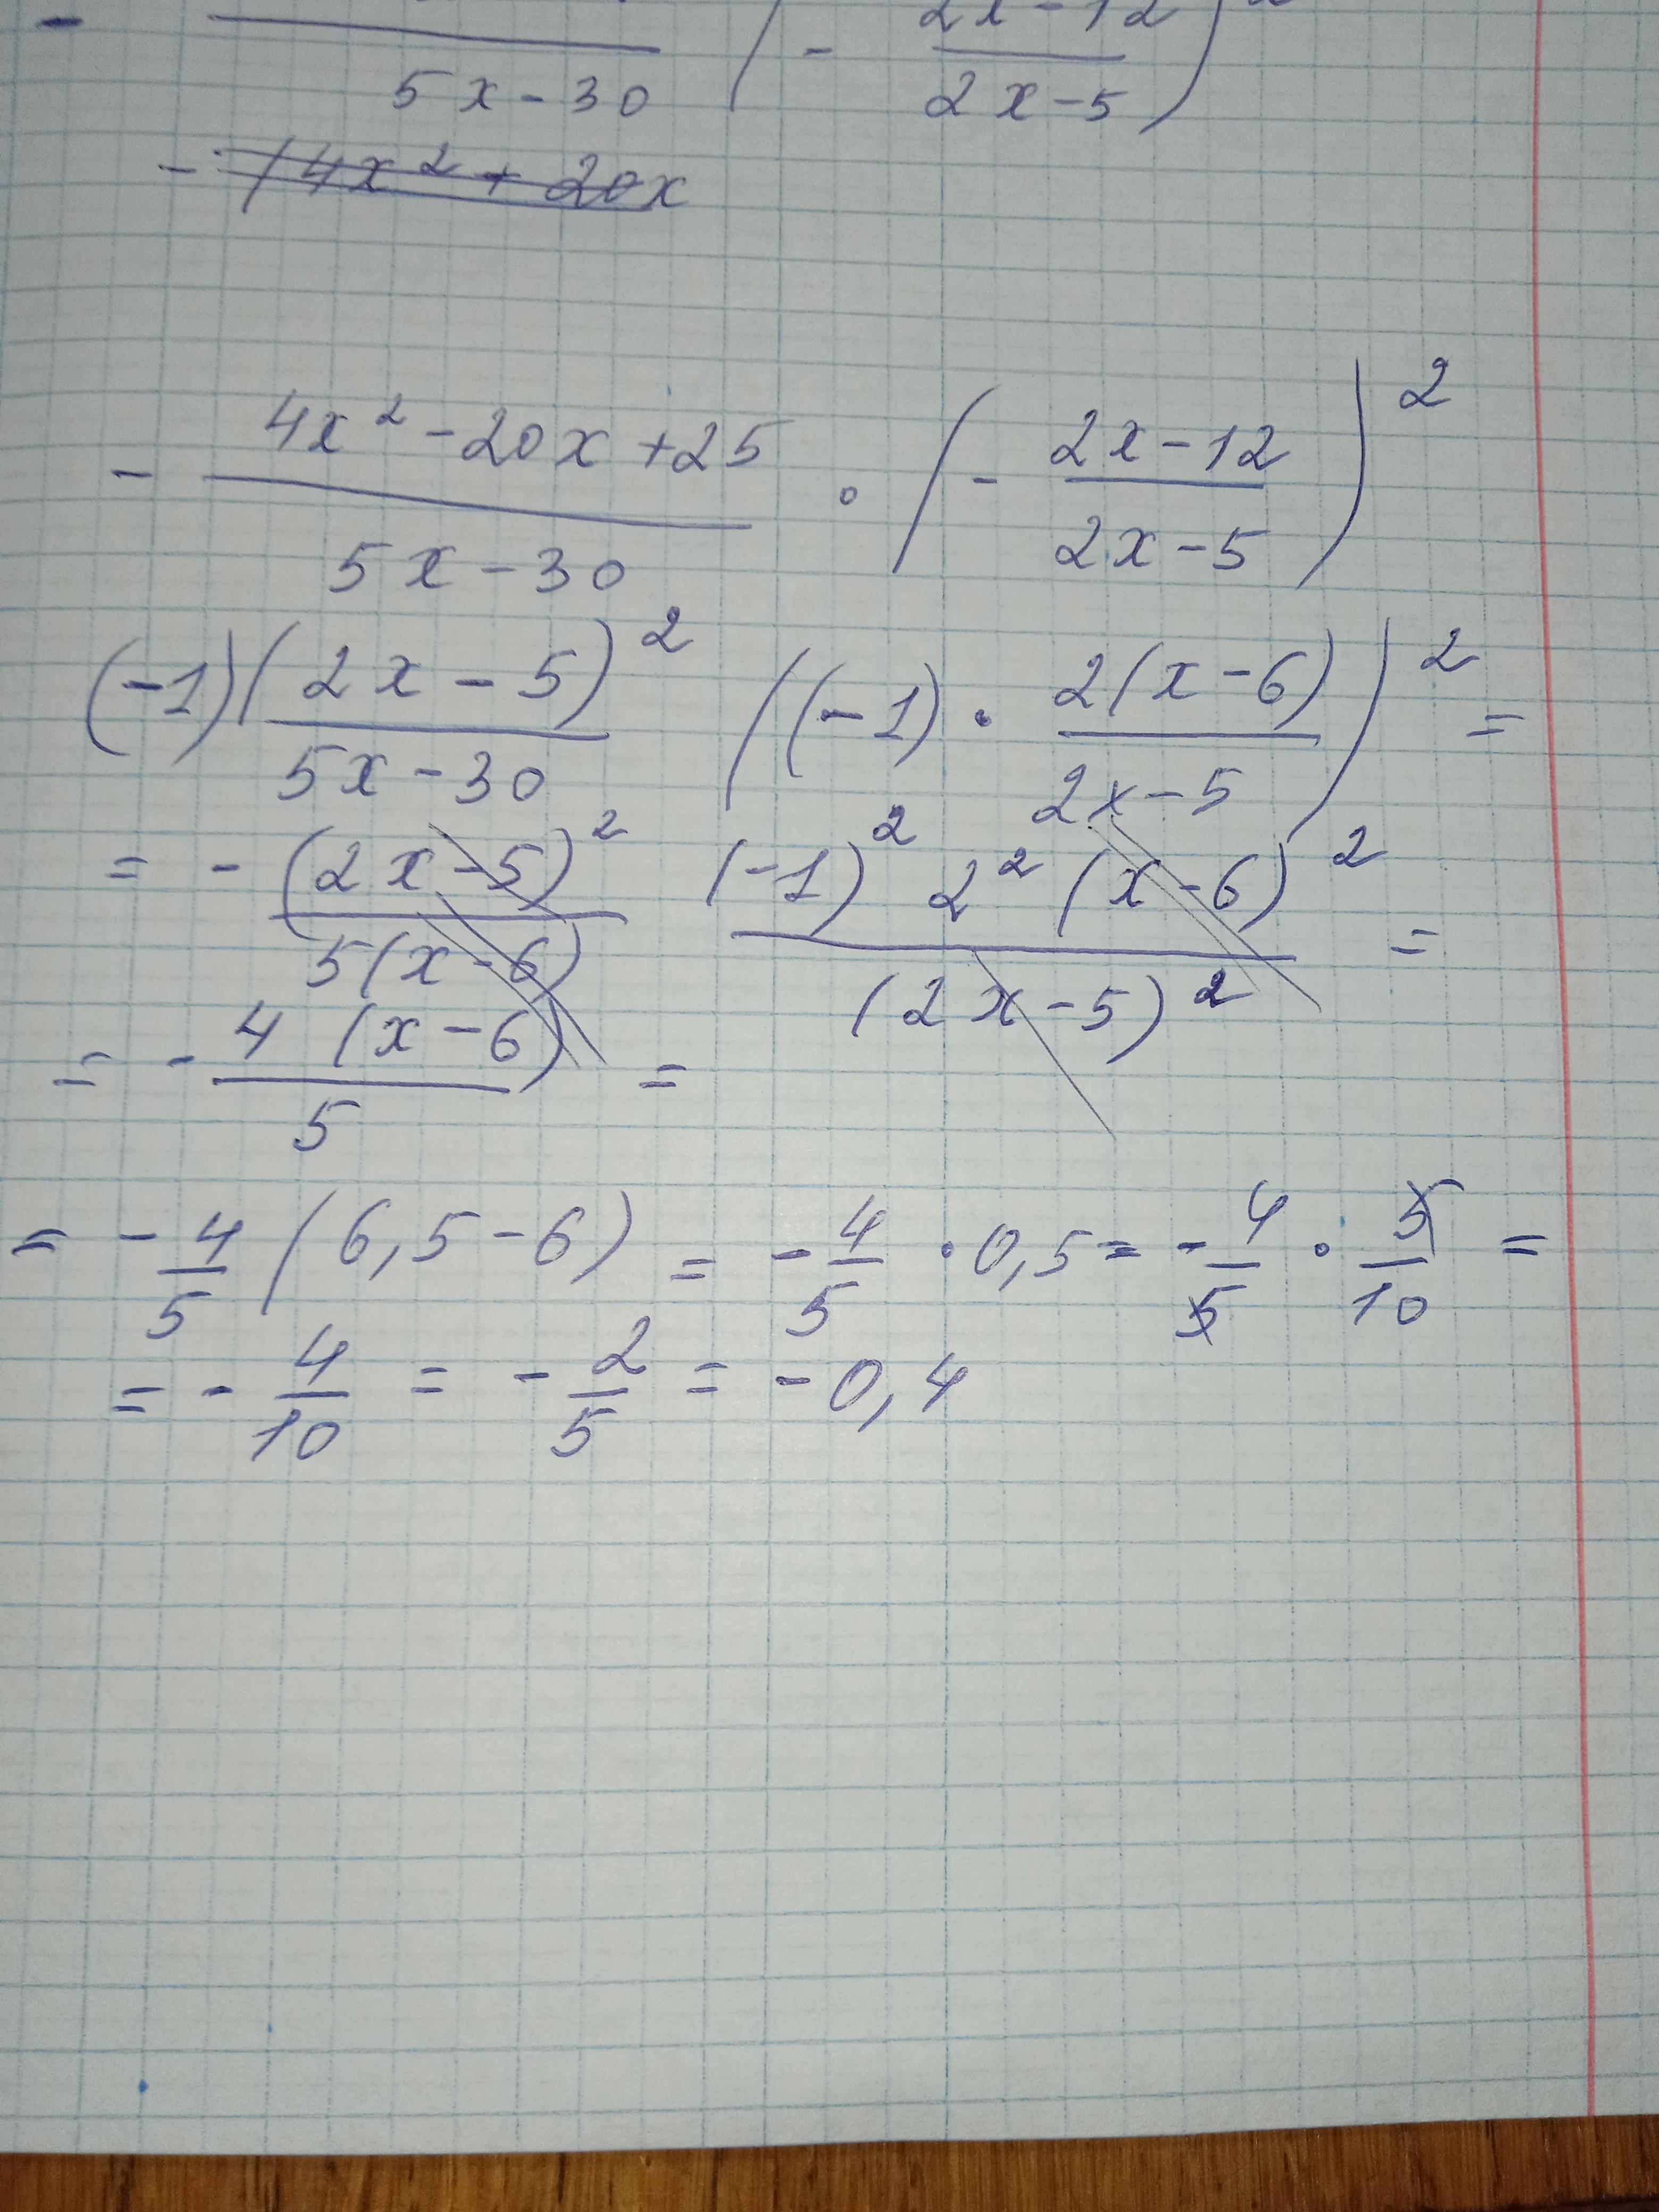 - 5x - 30 ( - 2x - 12 / 2x - 5 )
- (4x² + 20x
- 4x² - 20x + 25 / 5x - 30 · ( - 2x - 12 / 2x - 5 )²
(-1) (2x - 5)² / 5x - 30 ((-1) · 2(x - 6) / 2x - 5)² =
= - (2x - 5)² / 5(x - 6) (-1)² 2² (x - 6)² / (2x - 5)² =
= - 4 (x - 6) / 5 =
= - 4/5 (6,5 - 6) = - 4/5 · 0,5 = - 4/5 · 5/10 =
= - 4/10 = - 2/5 = - 0,4